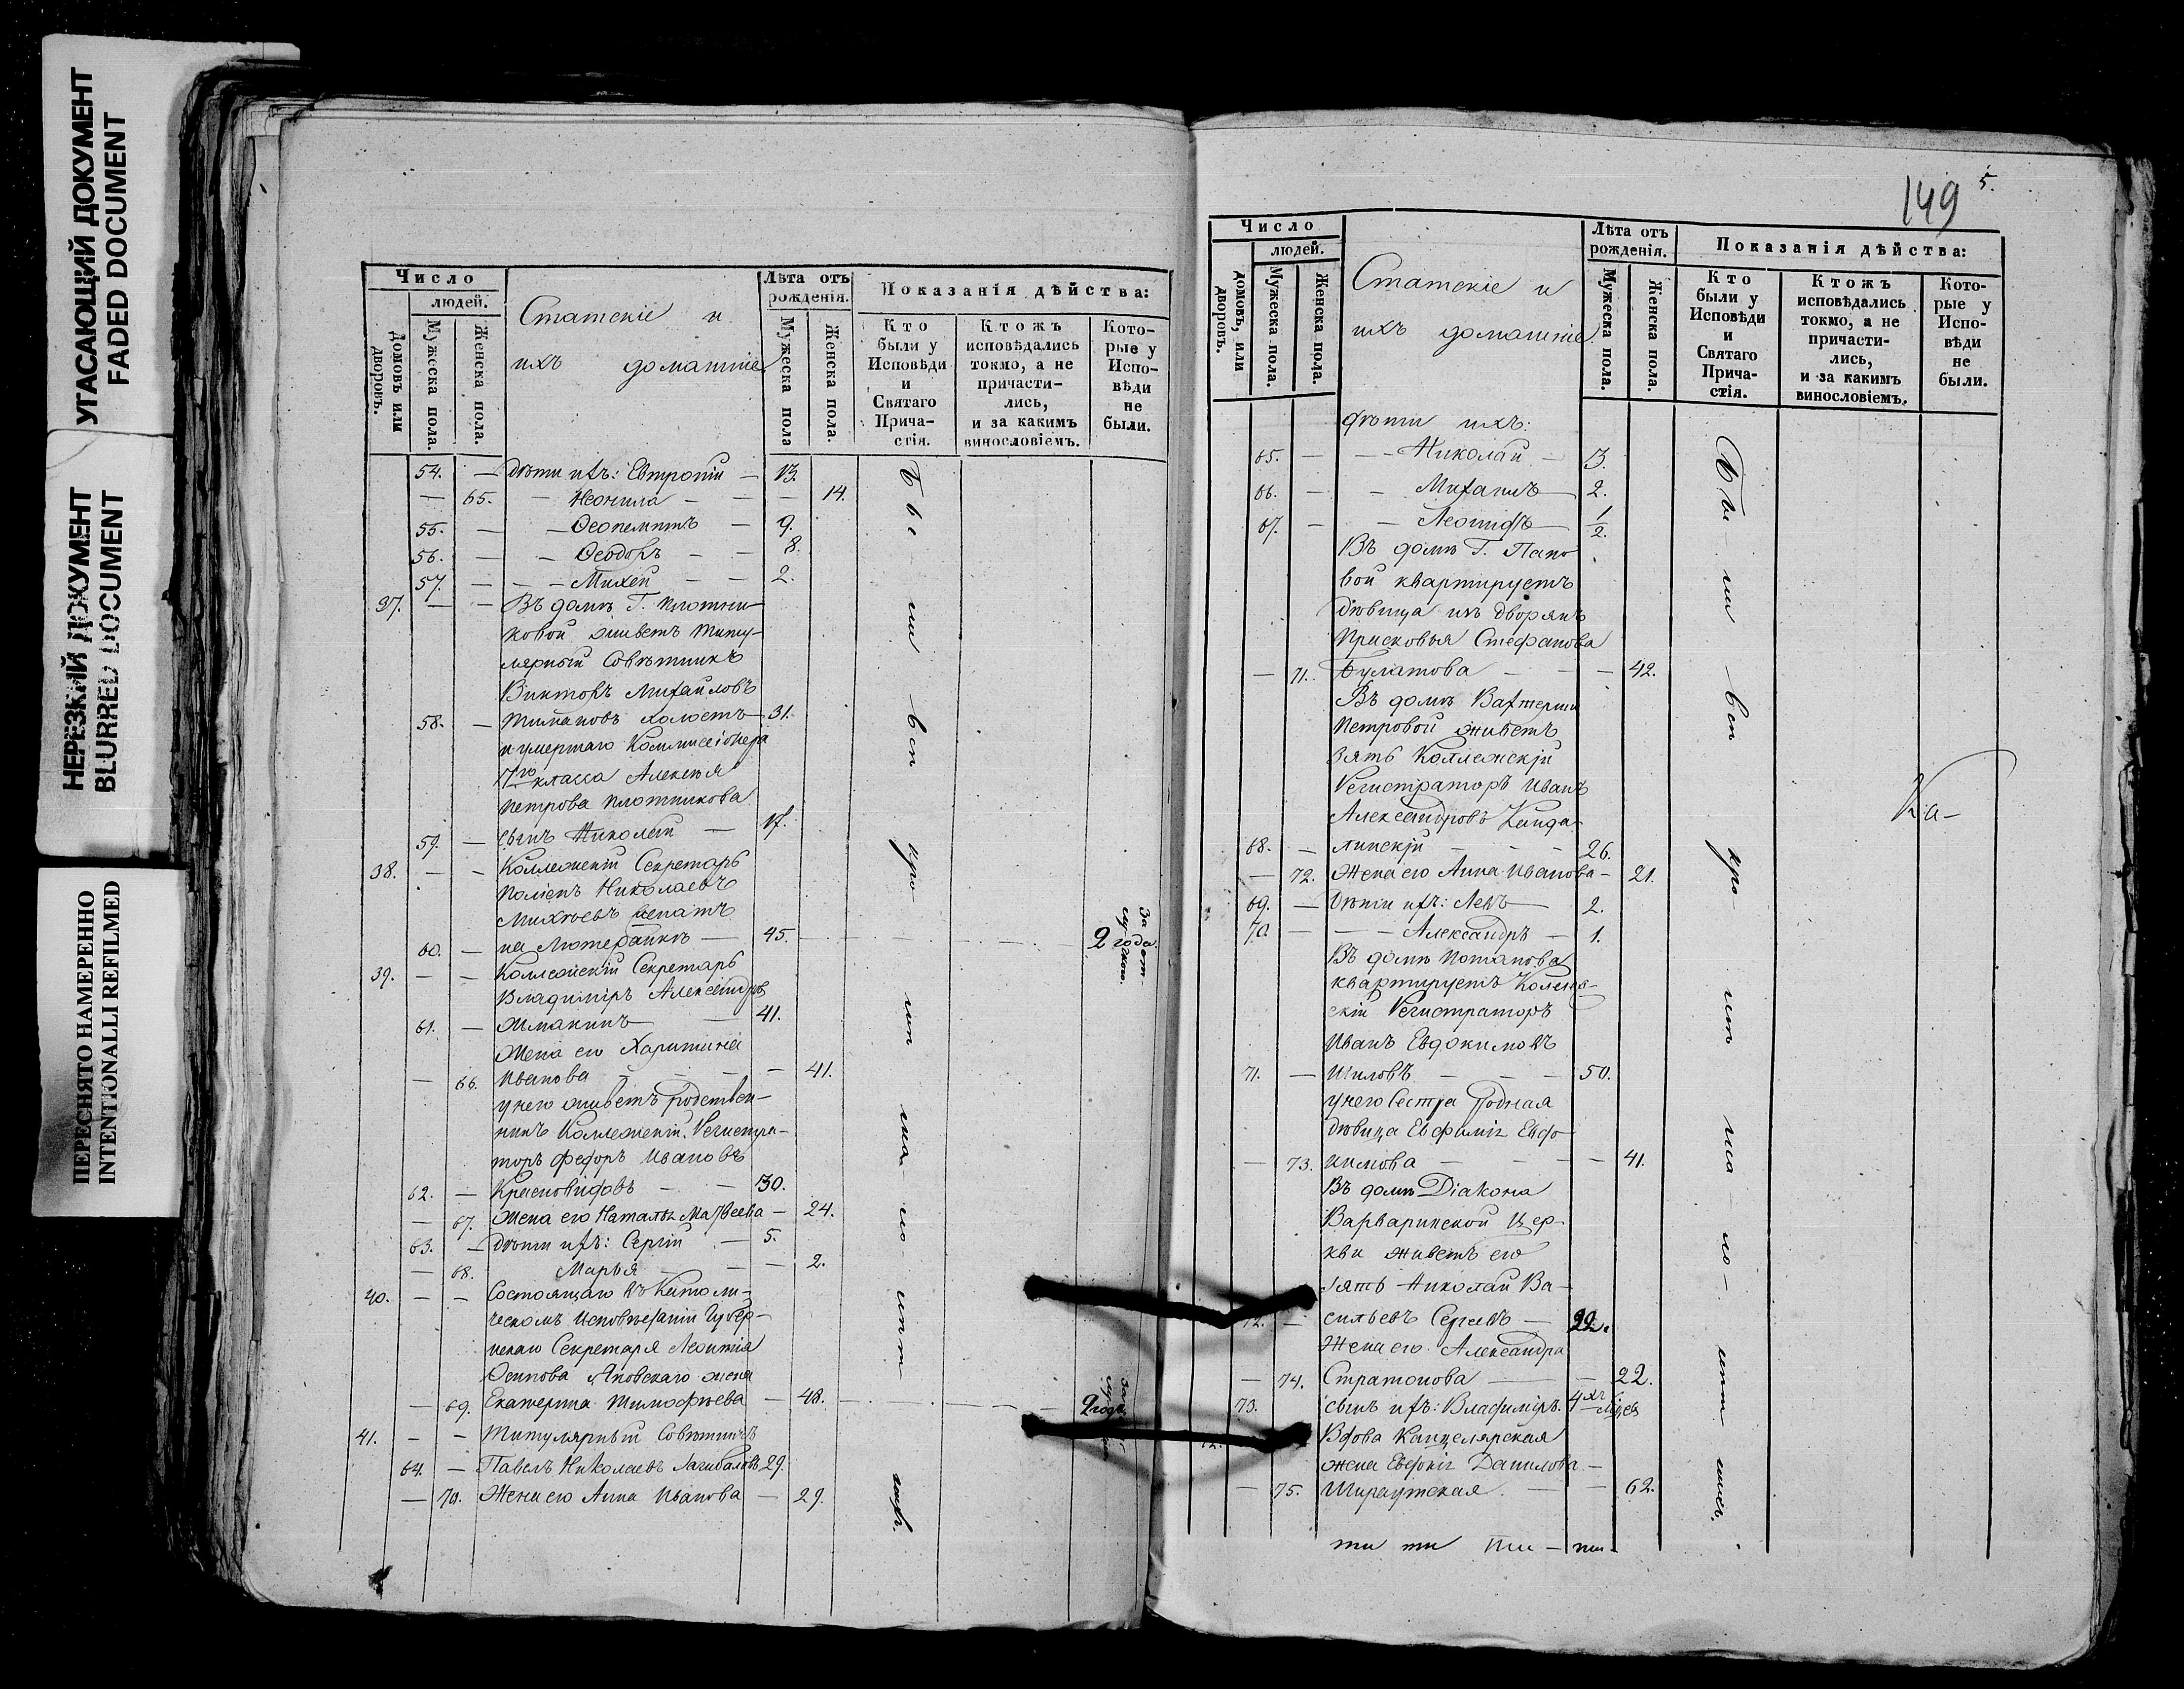 УГАСАЮЩИЙ ДОКУМЕНТ
FADED DOCUMENT
НЕРЕЗКИЙ ДОКУМЕНТ
BLURRED DOCUMENT
ПЕРЕСНЯТО НАМЕРЕННО
INTENTIONALLI REFILMED
Число
людей.
Домовъ или дворовъ.
Мужеска пола.
Женска пола.
Статскіе и
ихъ домашніе
Лѣта отъ рожденія.
Мужеска пола
Женска пола.
Показанія дѣйства:
Кто были у Исповѣди и Святаго Прича- стія.
Ктожъ исповѣдались токмо, а не причасти- лись, и за какимъ винословіемъ.
Кото- рые у Испо- вѣди не были.
54. — дѣти ихъ: Евтропій — 13.
— 65. — Неонила — — — 14.
55. — — Ѳеопемптъ — 9.
56. — — Ѳеодоръ — — 8.
57. — — — Михей — — 2.
37. — — Въ домѣ Г. Плотни-
ковой живетъ Титу-
лярный Совѣтникъ
Викторъ Михайловъ
58. — Тимановъ холостъ — 31.
и умершаго Коммисіонера
класса Алексѣя
Петрова Плотникова
59. — сынъ Николай — 17.
38. — — Коллежскій Секретарь
Николаевъ
Михѣевъ женатъ
60. — на Лютеранкѣ — 45. 2 года.
39. — — Коллежскій Секретарь
Владиміръ Александровъ
61. — Жмакинъ — 41.
Жена его Харитина
— 66. Иванова — — — — 41.
у него живетъ родствен-
никъ Коллежскій Регистра-
торъ Федоръ Ивановъ
62. — Красновидовъ — — 30.
— 67. Жена его Наталья Матвеева — 24.
63. — дѣти ихъ: Сергій — 5.
— 68. Марья — — — 2.
40. — — Состоящаго въ Католи-
ческомъ Исповѣданіи Губер-
нскаго Секретаря Леонтія
Осипова Яновскаго жена
— 69. Екатерина Тимофѣева — 48. 2 года.
41. — — Титулярный Совѣтникъ
64. — Павелъ Николаевъ 29.
— 70. Жена его Анна Иванова — 29.
Бы- ли всѣ про- 
149 5.
Число
людей.
домовъ, или дворовъ.
Мужеска пола.
Женска пола.
Статскіе и
ихъ домашніе
Лѣта отъ рожденія.
Мужеска пола.
Женска пола.
Показанія дѣйства:
Кто были у Исповѣди и Святаго Прича- стія.
Ктожъ исповѣдались токмо, а не причасти- лись, и за какимъ винословіемъ.
Кото- рые у Испо- вѣди не были.
дѣти ихъ:
65. — — Николай — 3.
66. — — Михаилъ — 2.
67. — — Леонидъ — 1/2.
Въ домѣ Г. Папо
вой квартируетъ
дѣвица изъ Дворянъ
Прасковья Стефанова
— 71. Булатова — — — 42.
Въ домѣ Вахтерши
Петровой живетъ
зять Коллежскій
Регистраторъ Иванъ
Александровъ Канда-
68. — линскій — — — 26.
— 72. Жена его Анна Иванова — 21.
69. — дѣти ихъ: Левъ — 2.
70. — — — Александръ — 1.
Въ домѣ Потапова
квартируетъ Коллеж-
скій Регистраторъ
Иванъ Евдокимовъ
71. — Шиловъ — — — 50.
у него сестра родная
дѣвица Евфимія Евдо
— 73. кимова — — — — 41.
Въ домѣ Діакона
Варваринской Цер-
кви живетъ его
зять Николай Ва-
72. — сильевъ Сергѣевъ — 22.
Жена его Александра
— 74. Стратонова — — 22.
73. сынъ ихъ: Владиміръ. 4хъ Мѣсяц.
Вдова Канцелярская
жена Евдокія Данилова —
— 75. — — 62.
ти ти пи — пи -
Бы- ли всѣ про-
Ка-